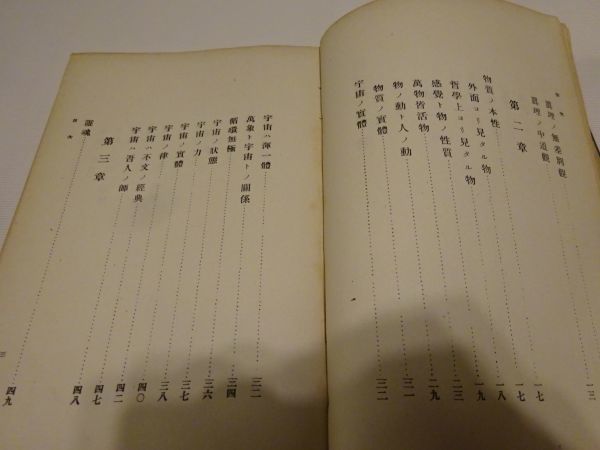 目次
眞理ノ無差別觀 一三
眞理ノ中道觀
第二章 一七
物質ノ本性 一七
外面ヨリ見タル物 一八
哲學上ヨリ見タル物 一九
感覺ト物ノ性質 二三
萬物皆活物 二九
物ノ動ト人ノ動 三一
物質ノ實體 三二
宇宙ノ實體
宇宙ハ渾一體 三二
萬象ト宇宙トノ關係 三四
循環無極 三六
宇宙ノ狀態 三七
宇宙ノ力 三八
宇宙ノ實體 四〇
宇宙ノ律 四二
宇宙ハ不文ノ經典 四七
宇宙ハ吾人ノ師 四八
第三章
靈魂 四九
目次
三